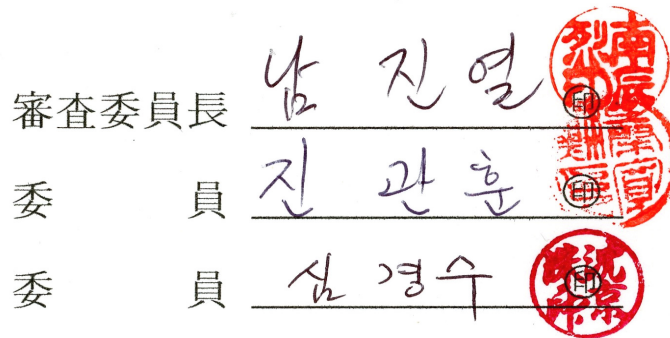 審査委員長 남 진 열 印
委 員 진 관 훈 印
委 員 심 경 수 印